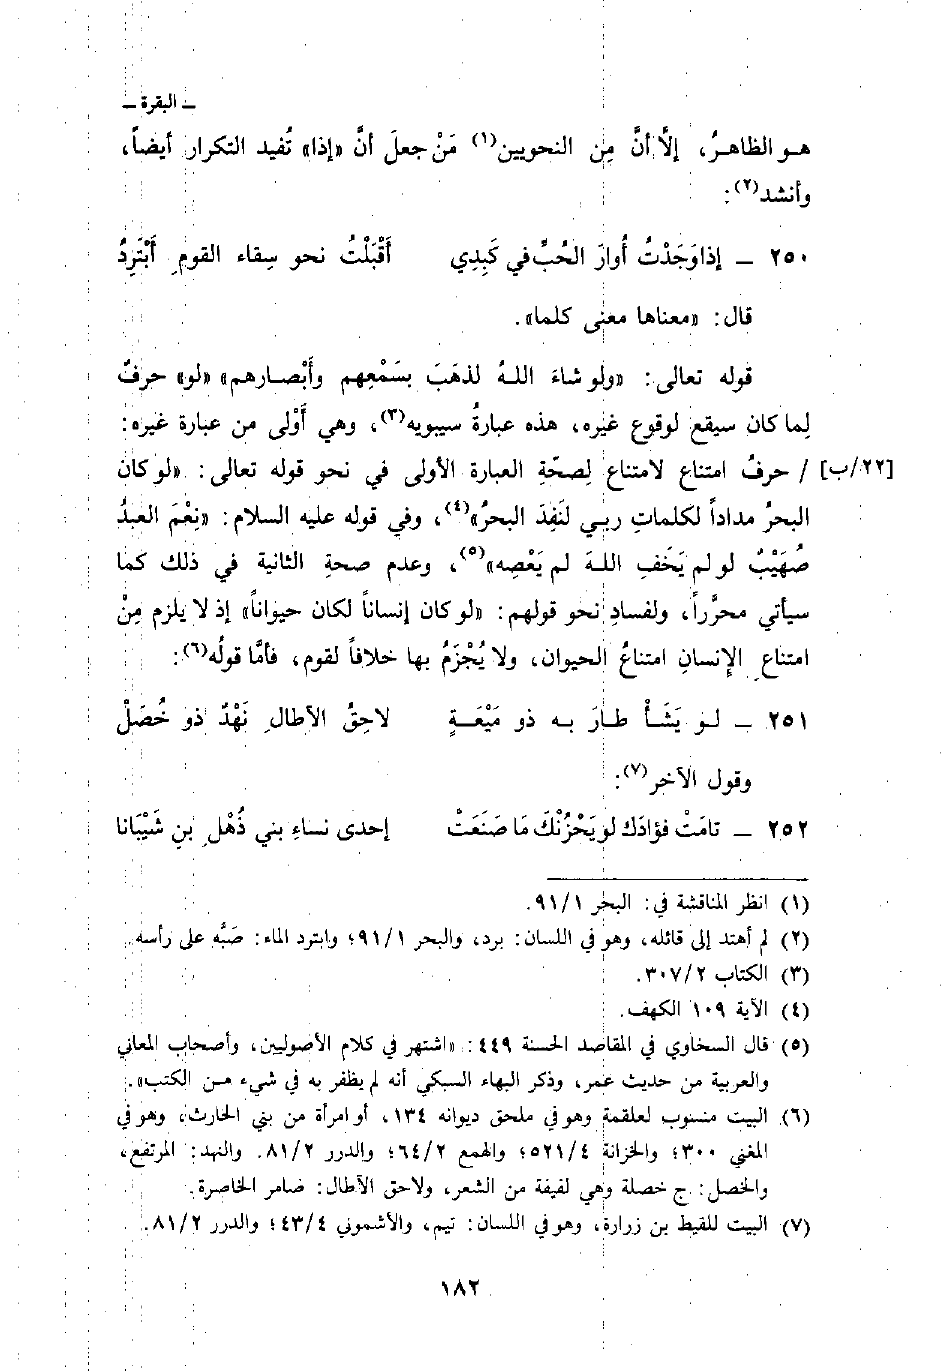 ـ البقرة ـ
هـو الظاهـرُ، إلَّا أنَّ مِن النحويين(١) مَنْ جعلَ أنَّ «إذا» تُفيد التكرار أيضاً،
وأنشد(٢):
٢٥٠ ـ إذا وَجَدْتُ أُوارَ الحُبِّ في كَبِدِي أَقْبَلْتُ نحو سِقاء القومِ أَبْتَرِدُ
قال: «معناها معنى كلما».
قوله تعالى: «ولو شاءَ اللهُ لذهَبَ بسَمْعِهم وأَبْصـارهم» «لو» حرفٌ
لِما كان سيقع لوقوع غيره، هذه عبارةُ سيبويه(٣)، وهي أَوْلى من عبارة غيره:
[٢٢/ب] / حرفُ امتناع لامتناع لِصحّةِ العبارة الأولى في نحو قوله تعالى: «لو كان
البحرُ مداداً لكلماتِ ربي لنَفِدَ البحرُ»(٤)، وفي قوله عليه السلام: «نِعْمَ العبدُ
صُهَيْبٌ لو لم يَخَفِ اللهَ لم يَعْصِه»(٥)، وعدم صحةِ الثانية في ذلك كما
سيأتي محرَّراً، ولفسادِ نحو قولهم: «لو كان إنساناً لكان حيواناً» إذ لا يلزم مِنْ
امتناعِ الإنسانِ امتناعُ الحيوان، ولا يُجْزَمُ بها خلافاً لقوم، فأمَّا قولُه(٦):
٢٥١ ـ لـو يَشَـأْ طـارَ بـه ذو مَيْعَـةٍ لاحِقُ الآطالِ نَهْدٌ ذو خُصَلْ
وقول الآخر(٧):
٢٥٢ ـ تامَتْ فؤادَك لو يَحْزُنْكَ مَا صَنَعَتْ إحدى نساءِ بني ذُهْلِ بنِ شَيْبَانا
(١) انظر المناقشة في: البحر ٩١/١.
(٢) لم أهتد إلى قائله، وهو في اللسان: برد، والبحر ٩١/١؛ وابترد الماء: صَبَّه على رأسه.
(٣) الكتاب ٣٠٧/٢.
(٤) الآية ١٠٩ الكهف.
(٥) قال السخاوي في المقاصد الحسنة ٤٤٩: «اشتهر في كلام الأصوليين، وأصحاب المعاني
والعربية من حديث عمر، وذكر البهاء السبكي أنه لم يظفر به في شيء مـن الكتب».
(٦) البيت منسوب لعلقمة وهو في ملحق ديوانه ١٣٤، أو امرأة من بني الحارث، وهو في
المغني ٣٠٠؛ والخزانة ٥٢١/٤؛ والهمع ٦٤/٢؛ والدرر ٨١/٢. والنهد: المرتفع،
والخصل: ج خصلة وهي لفيفة من الشعر، ولاحق الآطال: ضامر الخاصرة.
(٧) البيت للقيط بن زرارة، وهو في اللسان: تيم، والأشموني ٤٣/٤؛ والدرر ٨١/٢.
١٨٢